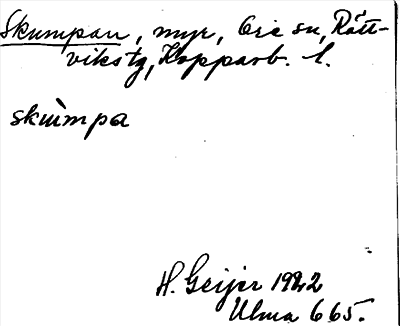 Skumpan, myr, Ore sn, Rätt-
vikstg, Kopparb. l.
skùmpa
H. Geijer 1922
Ulma 665.